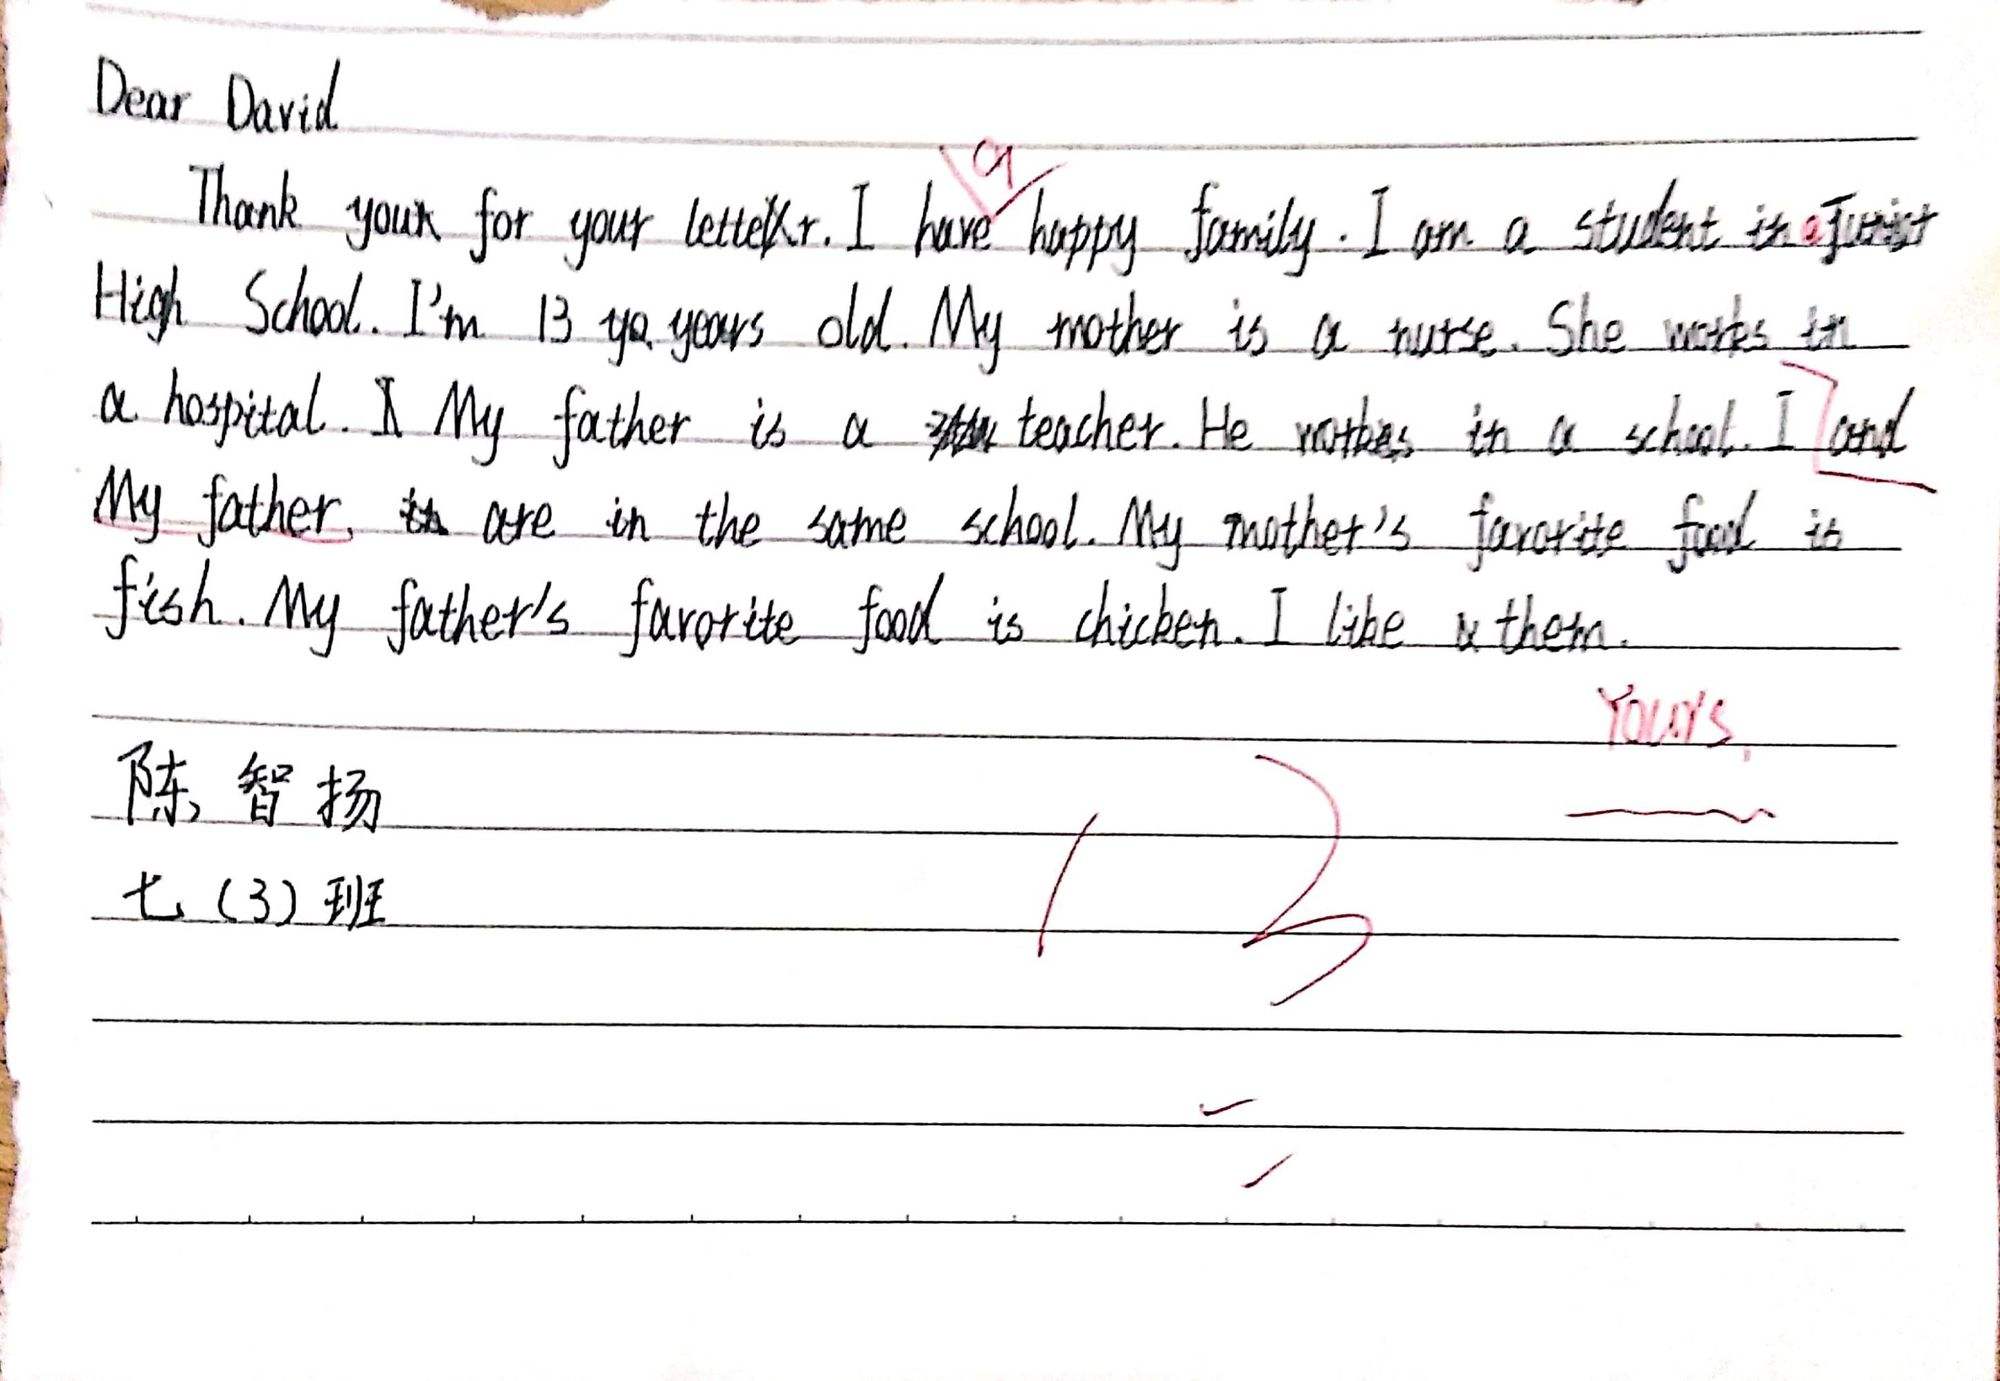 Dear David
a
Thank your for your letter. I have happy family. I am a student in a Junior
High School. I'm 13 ya years old. My mother is a nurse. She works in
a hospital. I My father is a teacher. He works in a school. I and
My father, in are in the same school. My mother's favorite food is
fish. My father's favorite food is chicken. I like a them.
Yours,
陈智扬
七(3)班
13